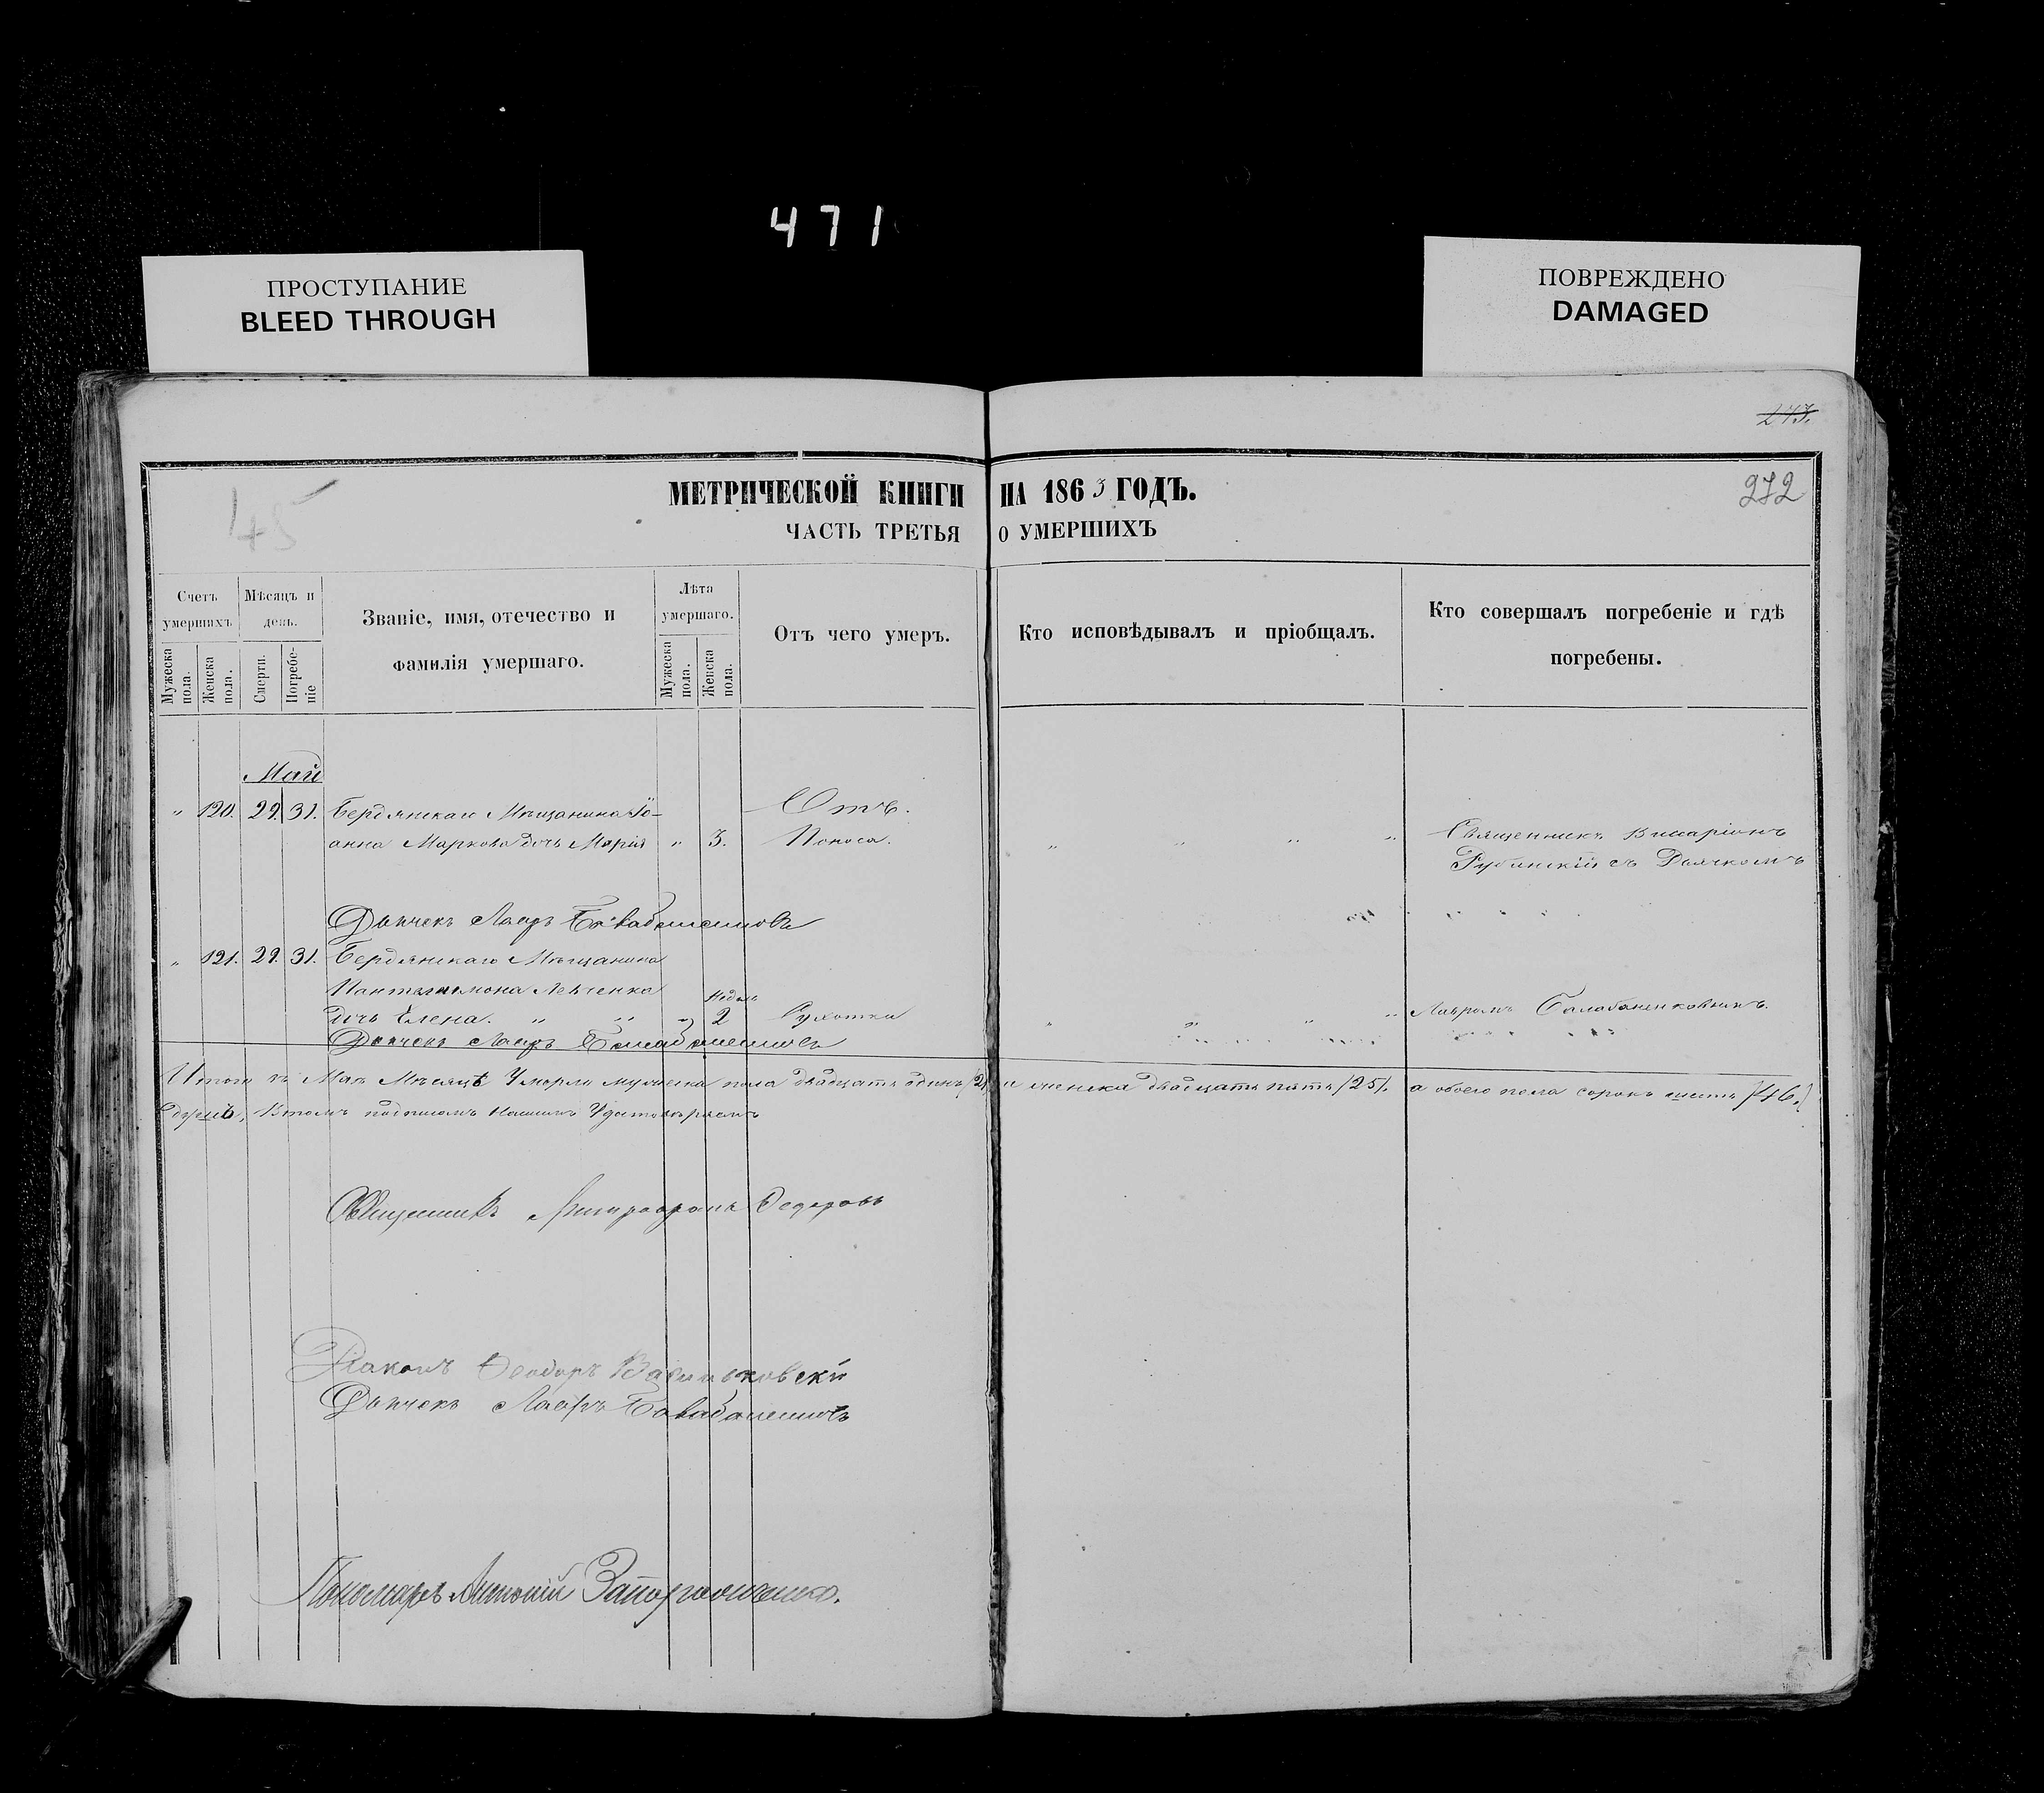 471
ПРОСТУПАНИЕ
BLEED THROUGH
ПОВРЕЖДЕНО
DAMAGED
243.
45
272
МЕТРИЧЕСКОЙ КНИГИ НА 1863 ГОДЪ.
ЧАСТЬ ТРЕТЬЯ О УМЕРШИХЪ
Счетъ умершихъ
Мужеска пола.
Женска пола.
Мѣсяцъ и день.
Смерти.
Погребеніе
Званіе, имя, отечество и фамилія умершаго.
Лѣта умершаго.
Мужеска пола.
Женска пола.
Отъ чего умеръ.
Кто исповѣдывалъ и пріобщалъ.
Кто совершалъ погребеніе и гдѣ погребены.
Май
" 120. 29. 31. Бердянскаго Мѣщанина Іо- Отъ.
анна Маркова дочь Марія " 3. Поноса. " " " " Священникъ Висаріонъ
Рубинскій съ Дьячкомъ
Дьячекъ Лавръ Балабаненковъ
" 121. 29. 31. Бердянскаго Мѣщанина
Пантелимона Левченка
дочь Елена. " " " Недѣль 2 Сухотки " " " " Лавромъ Балабаненковымъ.
Дьячекъ Лавръ Балабаненковъ
Итого въ Маѣ Мѣсяцѣ Умерло мужеска пола двадцать одинъ /21/ и женска двадцать пять /25/. а обоего пола сорокъ шесть /46./
душъ, Въ томъ подписомъ Нашимъ Удостовѣряемъ
Священникъ Федоровъ
Діаконъ Феодоръ Васильковскій
Дьячекъ Лавръ Балабаненковъ
Пономарь Антоній